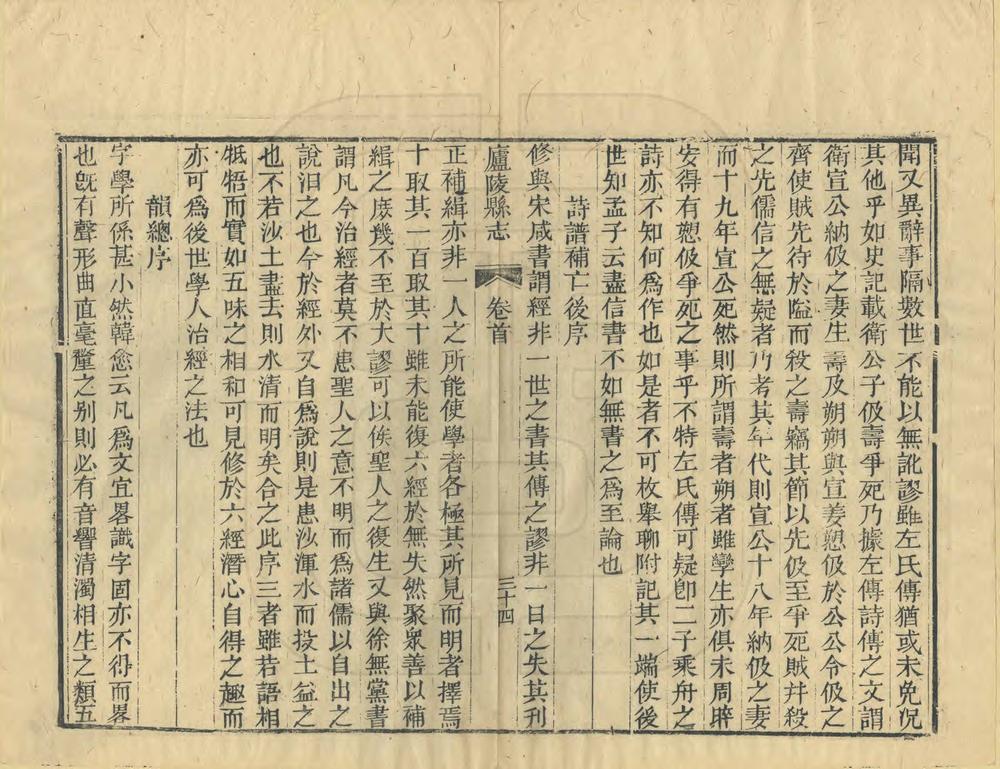 聞又異辭事隔數世不能以無訛謬雖左氏傳猶或未免况
其他乎如史記載衛公子伋壽爭死乃據左傳詩傳之文謂
衛宣公納伋之妻生壽及朔朔與宣姜愬伋於公公令伋之
齊使賊先待於隘而殺之壽竊其節以先伋至爭死賊并殺
之先儒信之無疑者乃考其年代則宣公十八年納伋之妻
而十九年宣公死然則所謂壽者朔者雖孿生亦俱未周晬
安得有愬伋爭死之事乎不特左氏傳可疑卽二子乘舟之
詩亦不知何爲作也如是者不可枚舉聊附記其一端使後
世知孟子云盡信書不如無書之爲至論也
詩譜補亡後序
修與宋咸書謂經非一世之書其傳之謬非一日之失其刋
廬陵縣志
卷首
三十四
正補緝亦非一人之所能使學者各極其所見而明者擇焉
十取其一百取其十雖未能復六經於無失然聚衆善以補
緝之庶幾不至於大謬可以俟聖人之復生又與徐無黨書
謂凡今治經者莫不患聖人之意不明而爲諸儒以自出之
說汨之也今於經外又自爲說則是患沙渾水而投土益之
也不若沙土盡去則水清而明矣合之此序三者雖若語相
牴牾而實如五味之相和可見修於六經潛心自得之趣而
亦可爲後世學人治經之法也
韻總序
字學所係甚小然韓愈云凡爲文宜畧識字固亦不得而畧
也旣有聲形曲直毫釐之别則必有音響清濁相生之類五